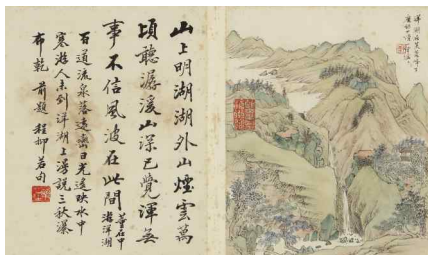 洋湖
山上明湖湖外山煙雲萬
頃聽潺湲山深已覺渾無
事不信風波在此間 董石中
遊洋湖
百道流泉落遠巒日光返映水中
寒游人未到洋湖上漫說三秋瀑
布乾 前題 程柳若句